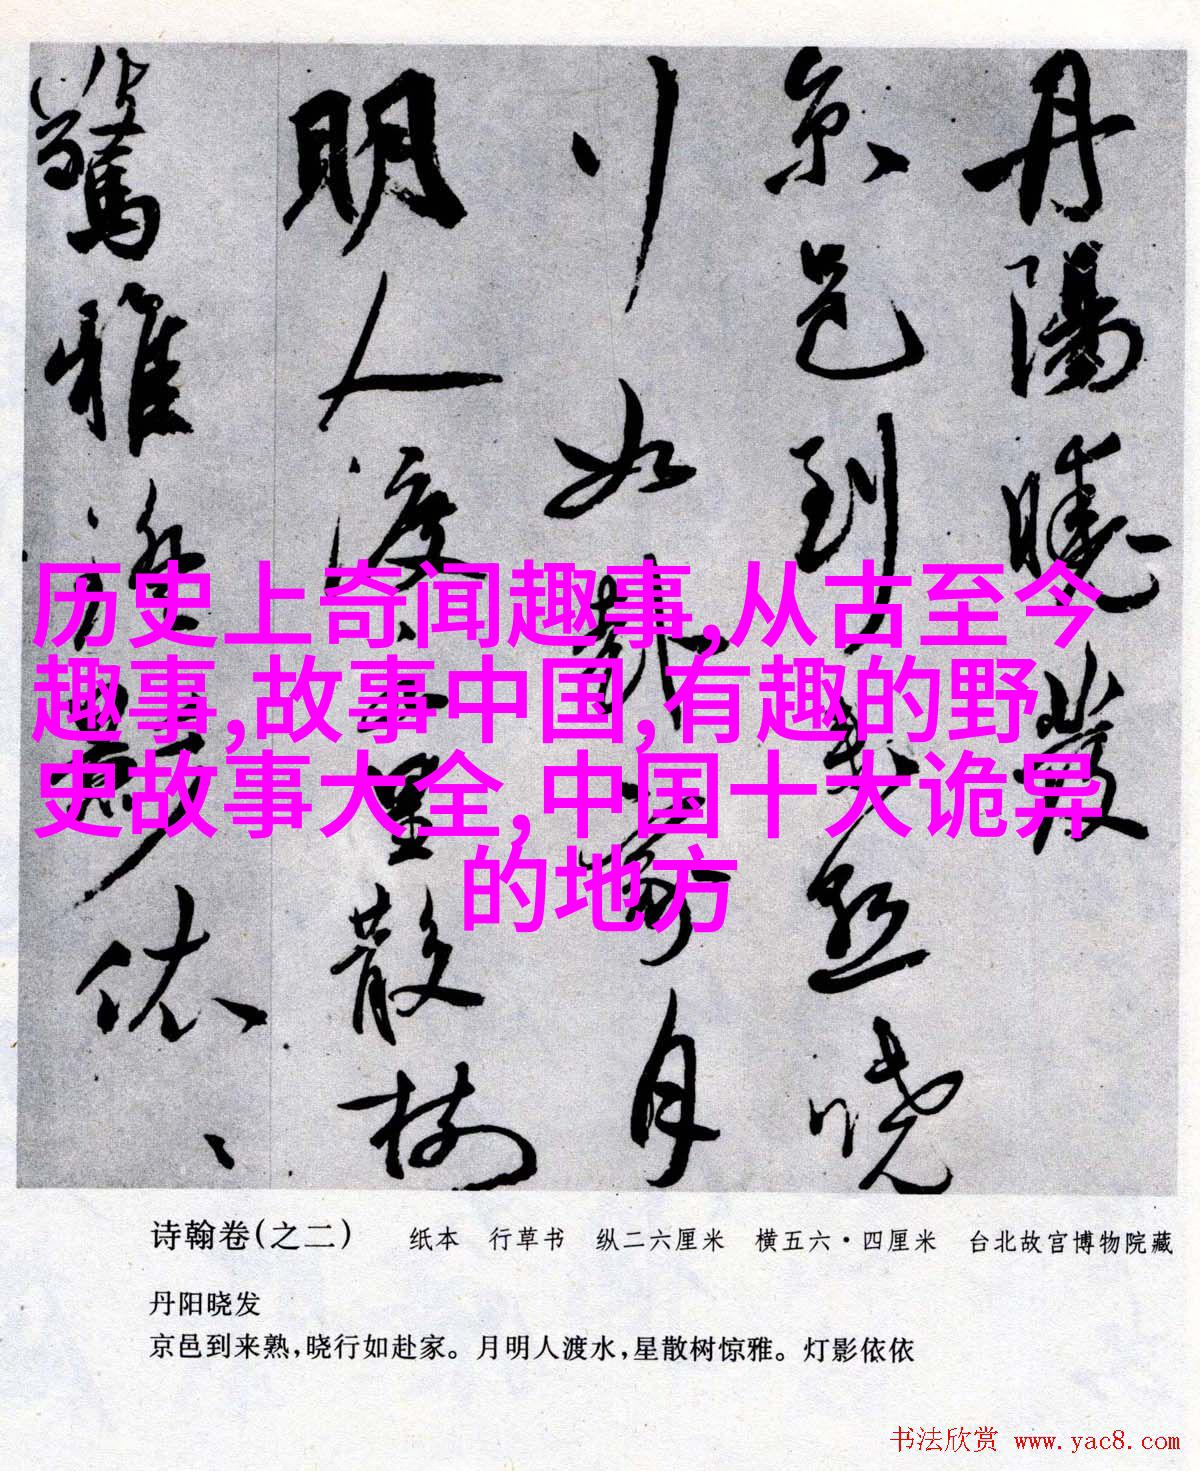 丹陽曉發
京邑到来熟曉
行如赴家月
明人渡水星散樹
驚雅灯影依依
历史上奇闻趣事,从古至今
趣事,故事中国,有趣的野
史故事大全,中国十大诡异
的地方
诗翰卷(之二) 纸本 行草书 纵二六厘米 横五六·四厘米 台北故宫博物院藏
丹阳晓发
京邑到来熟,晓行如赴家。月明人渡水,星散树惊雅。灯影依依
书法欣赏 www.yac8.com